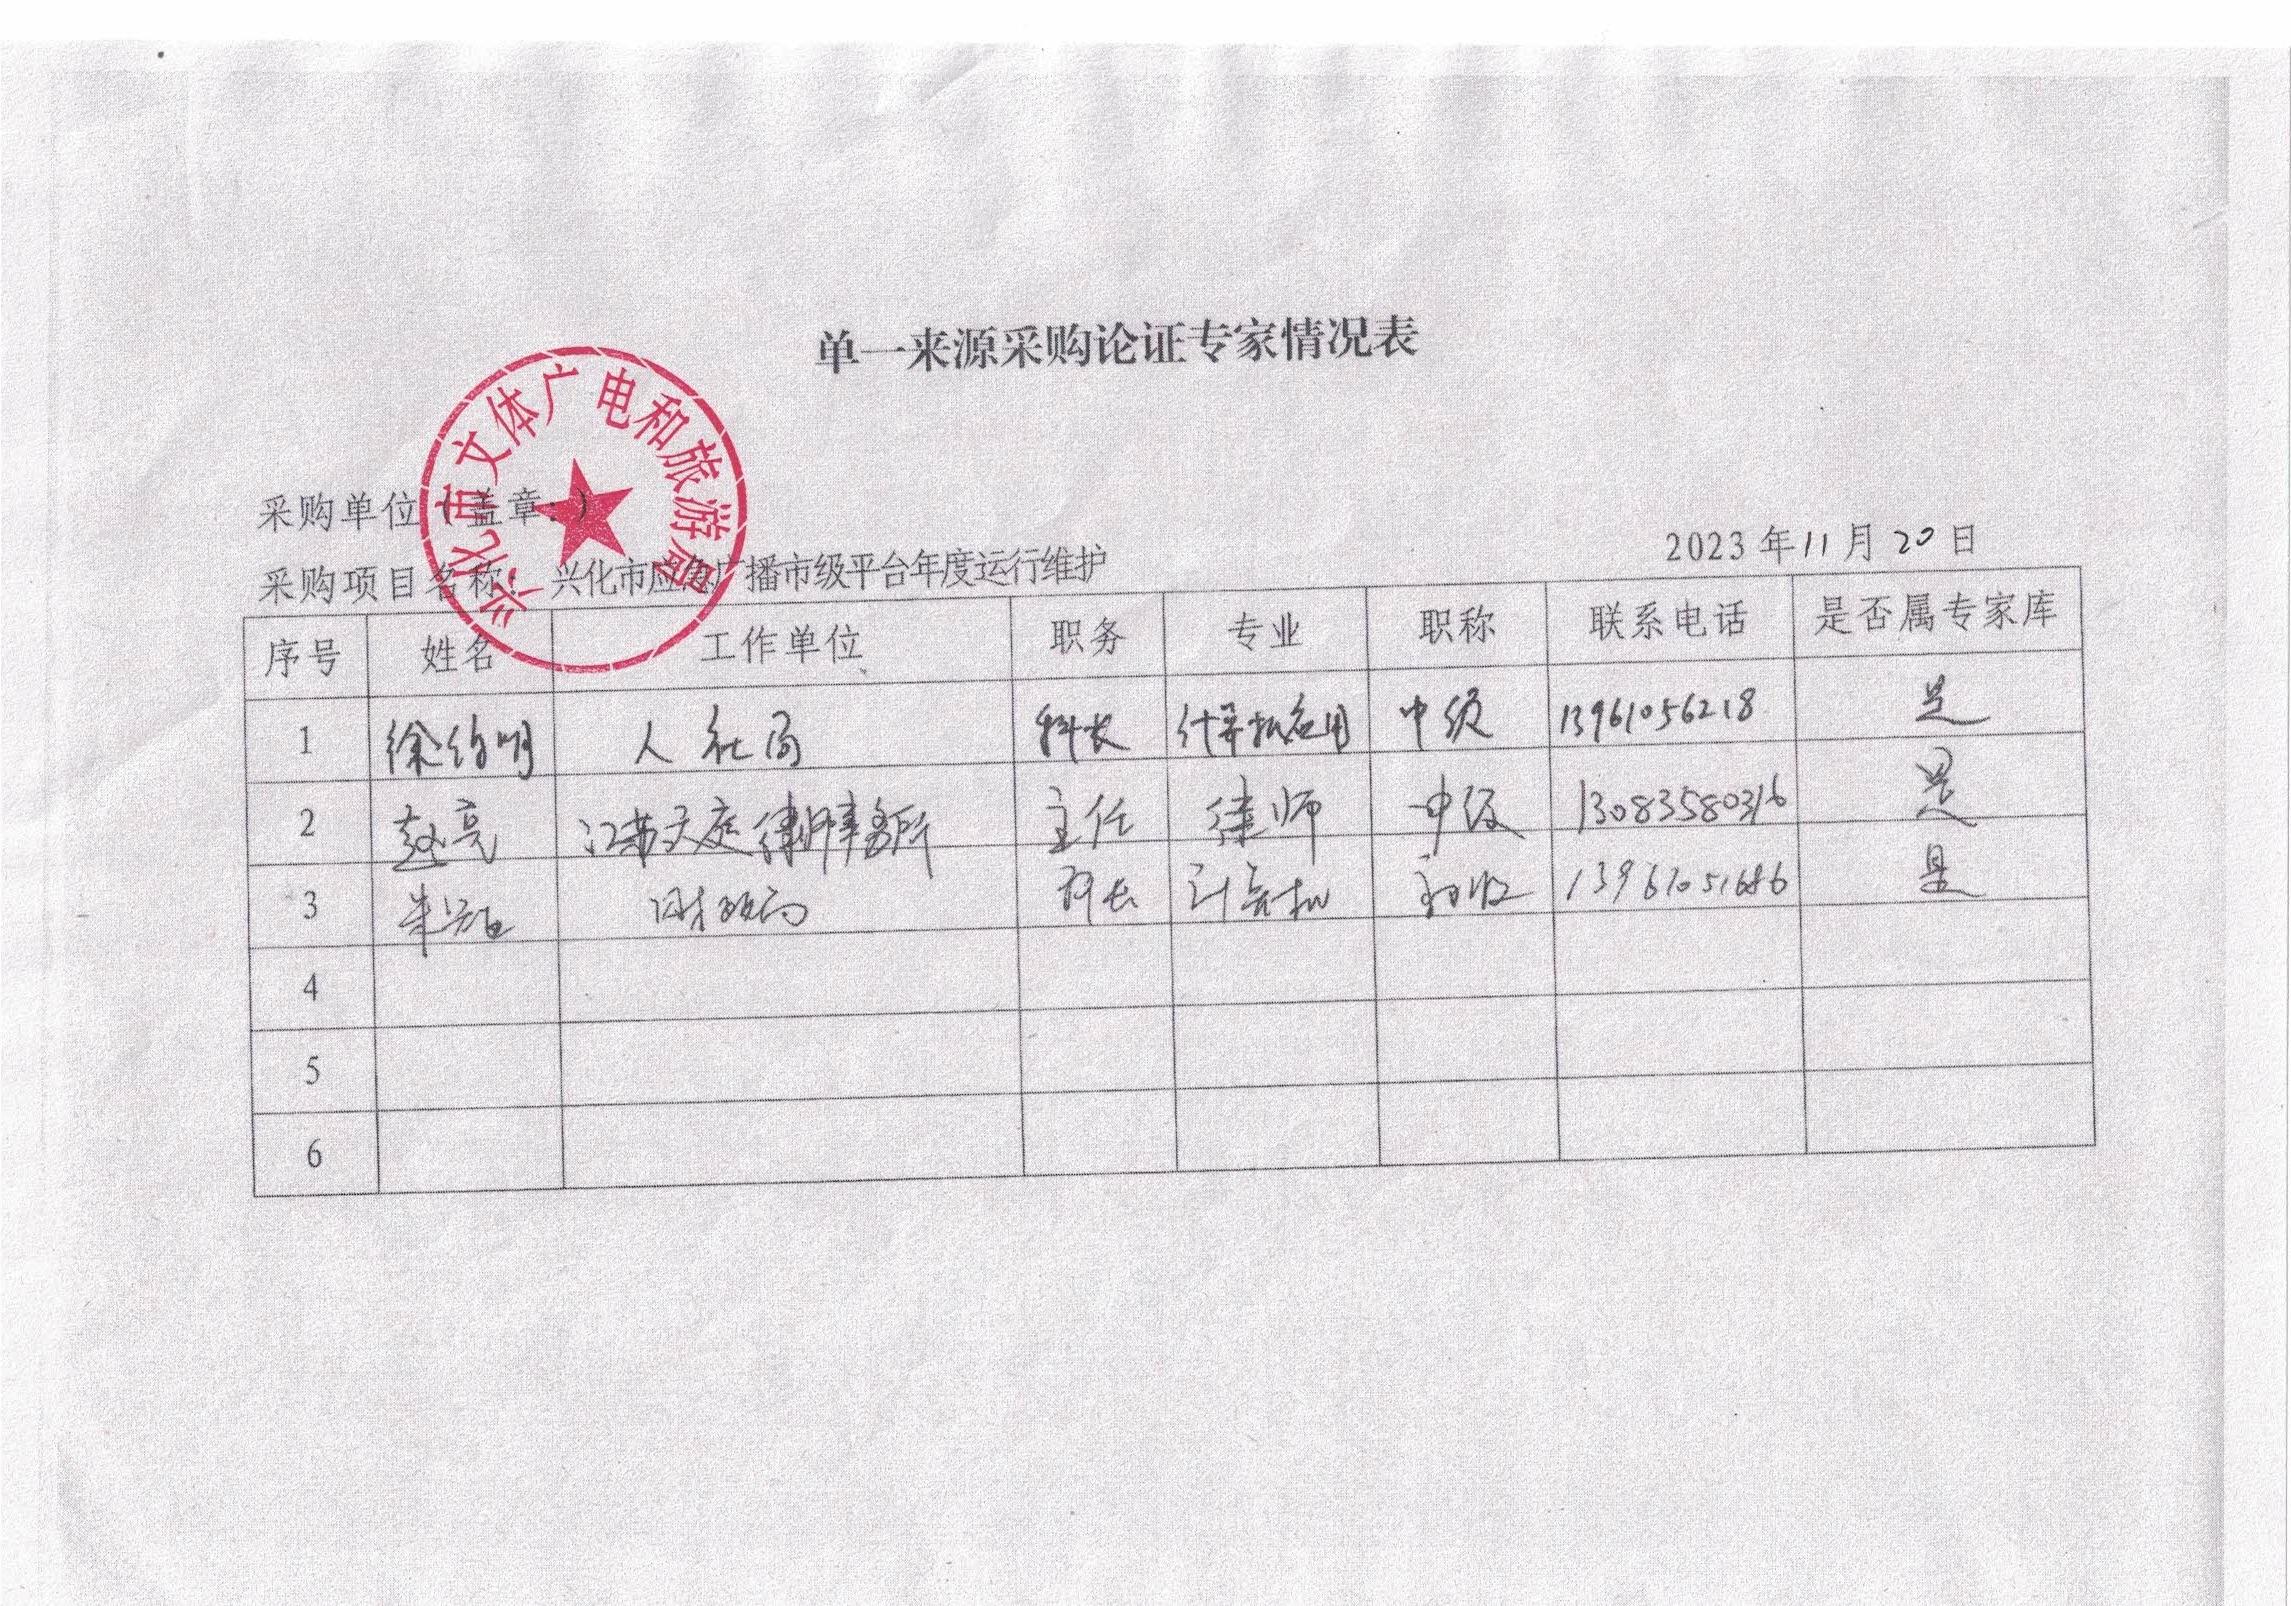 单一来源采购论证专家情况表
兴化市文体广电和旅游局
采购单位（盖章:）
2023年11月20日
采购项目名称: 兴化市应急广播市级平台年度运行维护
序号 姓名 工作单位 职务 专业 职称 联系电话 是否属专家库
1 徐伯明 人社局 科长 计算机应用 中级 13961056218 是
2 赵亮 江苏天庭律师事务所 主任 律师 中级 13083580316 是
3 朱 财政局 科长 计算机 13961051686 是
4
5
6